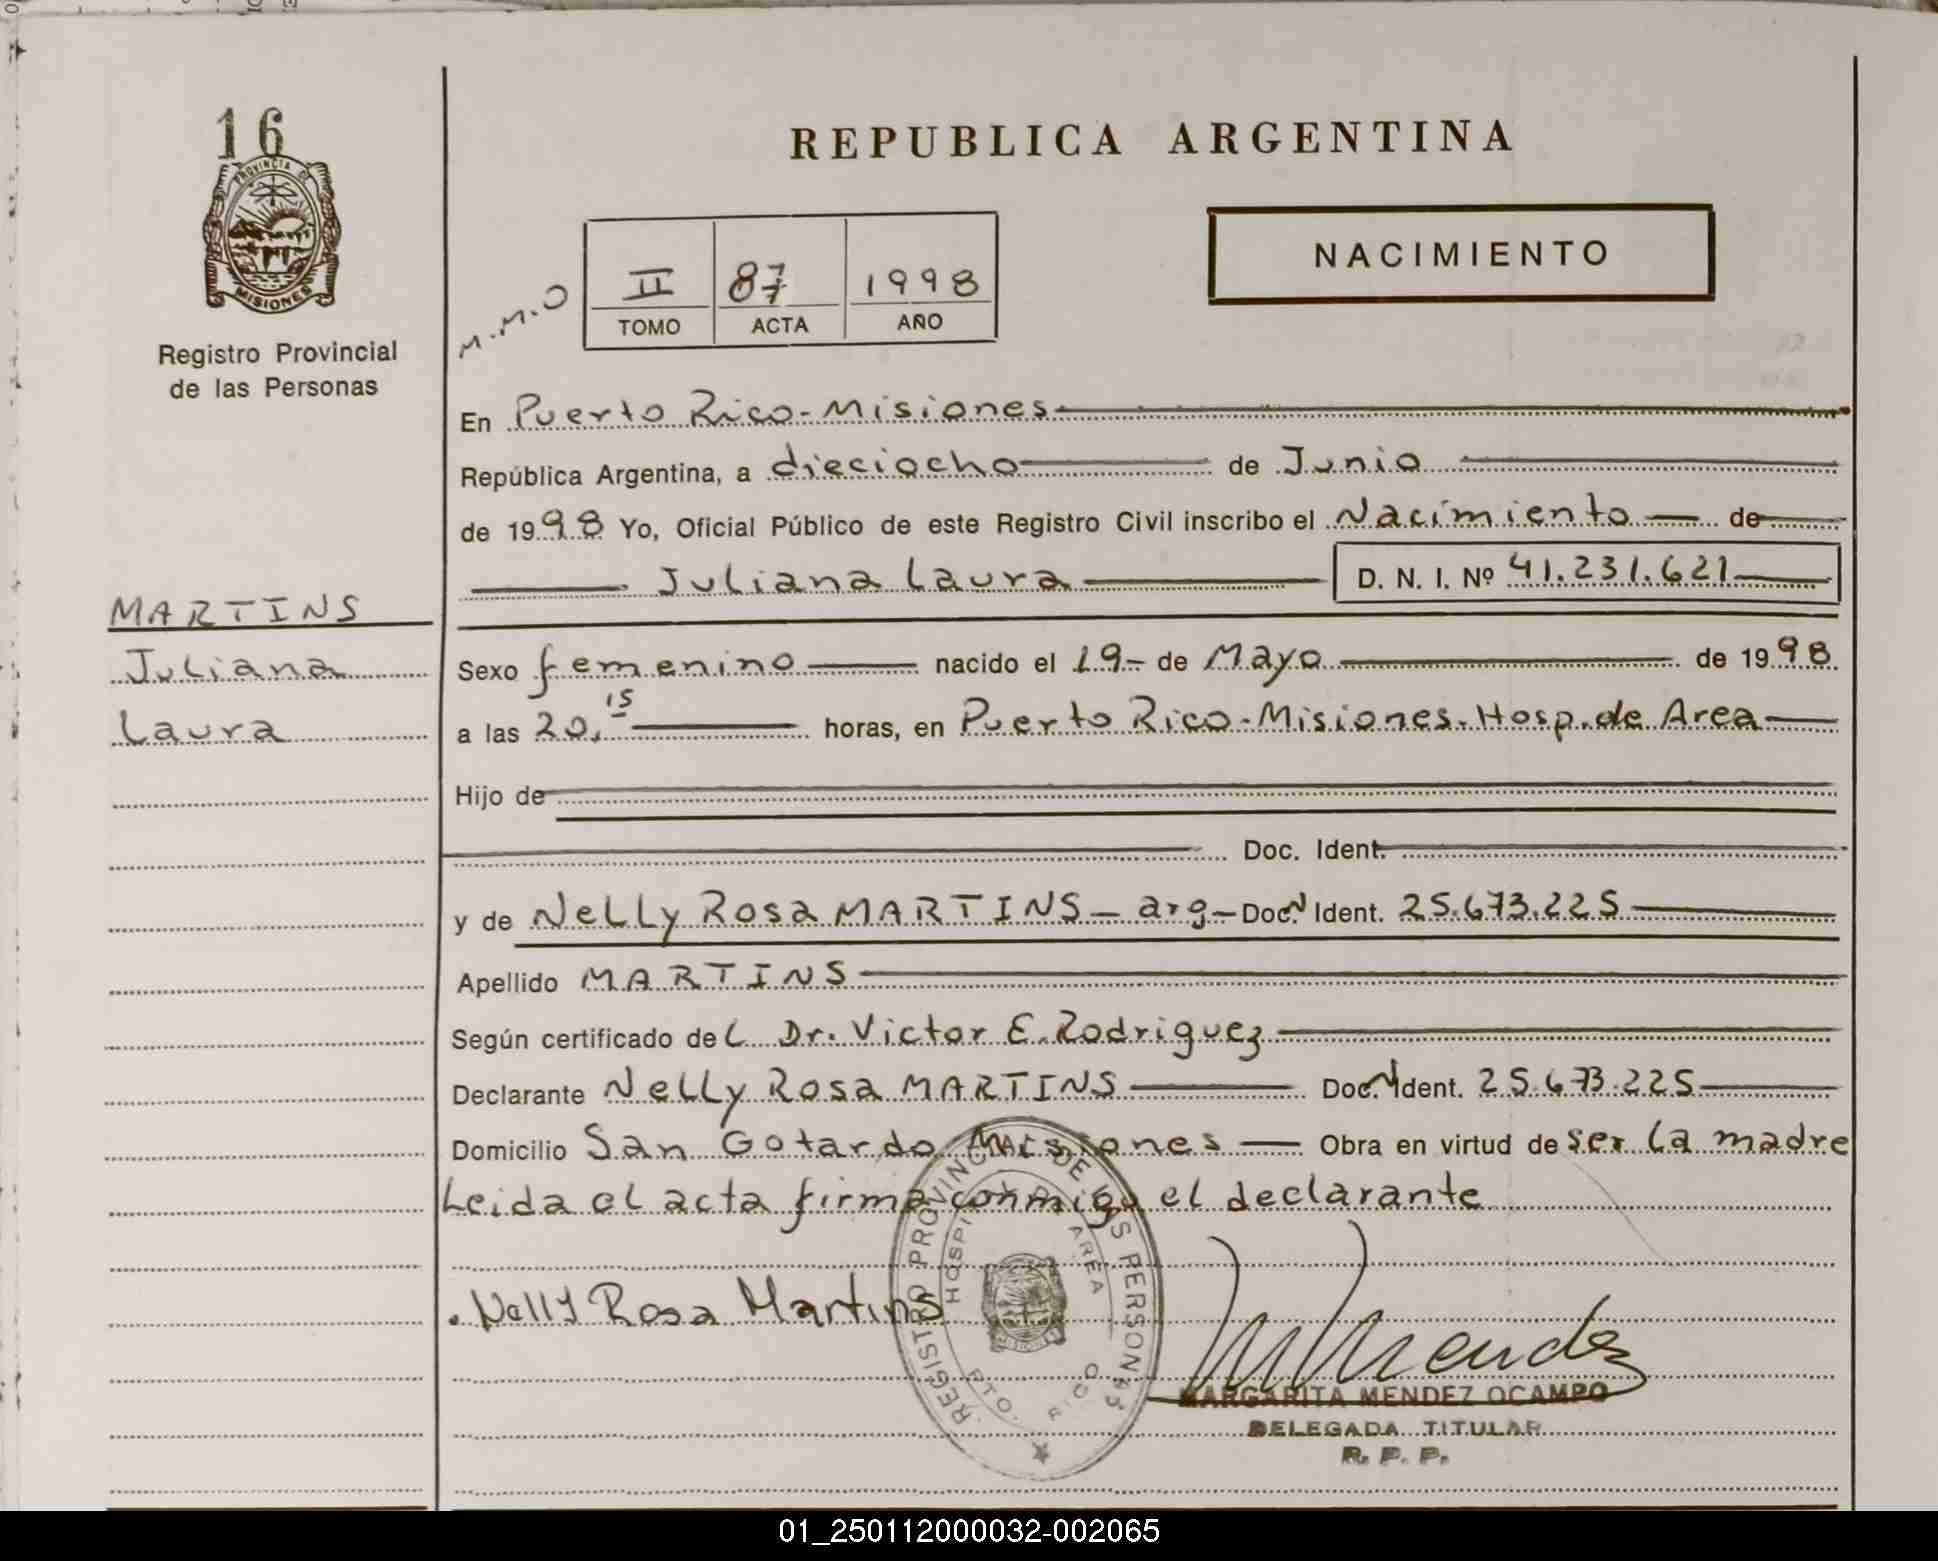 16
PROVINCIA DE
MISIONES
Registro Provincial
de las Personas
MARTINS
Juliana
Laura
REPUBLICA ARGENTINA
NACIMIENTO
M.M.O
II 87 1998
TOMO ACTA AÑO
En Puerto Rico-Misiones
República Argentina, a dieciocho de Junio
de 1998 Yo, Oficial Público de este Registro Civil inscribo el Nacimiento de
Juliana Laura D. N. I. Nº 41.231.621
Sexo femenino nacido el 19- de Mayo de 1998
a las 20,15 horas, en Puerto Rico-Misiones-Hosp.de Area
Hijo de
Doc. Ident.
y de Nelly Rosa MARTINS - arg- Doc.N Ident. 25.673.225
Apellido MARTINS
Según certificado del Dr. Victor E. Rodriguez
Declarante Nelly Rosa MARTINS Doc.N Ident. 25.673.225
Domicilio San Gotardo Misiones Obra en virtud de ser la madre
Leida el acta firma conmigo el declarante
Nelly Rosa Martins
REGISTRO PROVINCIAL DE LAS PERSONAS
HOSPITAL AREA
PTO. RICO
MMendez
MARGARITA MENDEZ OCAMPO
DELEGADA TITULAR
R. P. P.
01_250112000032-002065